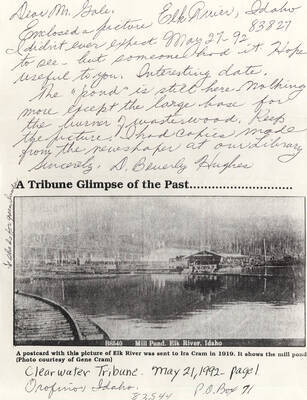 Dear Mr. Gale. Elk River, Idaho
83827
Enclosed a picture May 27-92
I didn't ever expect
to see - but someone had it. Hope
useful to you. Interesting date.
The "pond" is still here. Nothing
more except the large base for
the burner of waste wood. Keep
the picture. I had copies made
from the newspaper at our library
Sincerely. D. Beverly Hughes
A Tribune Glimpse of the Past......................
R8840 Mill Pond, Elk River, Idaho
A postcard with this picture of Elk River was sent to Ira Cram in 1919. It shows the mill pond
(Photo courtesy of Gene Cram)
Clearwater Tribune. May 21, 1992 - page 1
Orofino, Idaho. P.O. Box 71
83544